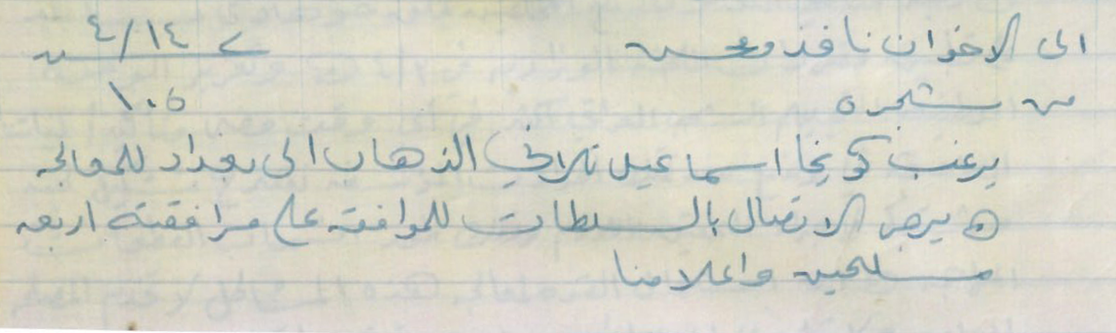 الى الاخوان نافذ ومحسن
٤/١٤
من شجره
١٠٥
يرغب كويخا اسماعيل تلاني الذهاب الى بغداد للمعالجه
يرجى الاتصال بالسلطات للموافقه على مرافقته اربعه
مسلحين واعلامنا